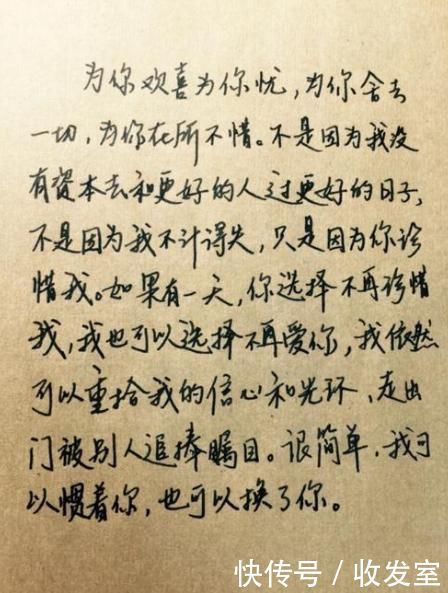 为你欢喜为你忧，为你舍去
一切，为你在所不惜。不是因为我没
有资本去和更好的人过更好的日子，
不是因为我不计得失，只是因为你珍
惜我。如果有一天，你选择不再珍惜
我，我也可以选择不再爱你，我依然
可以重拾我的信心和光环，走出
门被别人追捧瞩目。很简单，我可
以惯着你，也可以换了你。
快传号／收发室